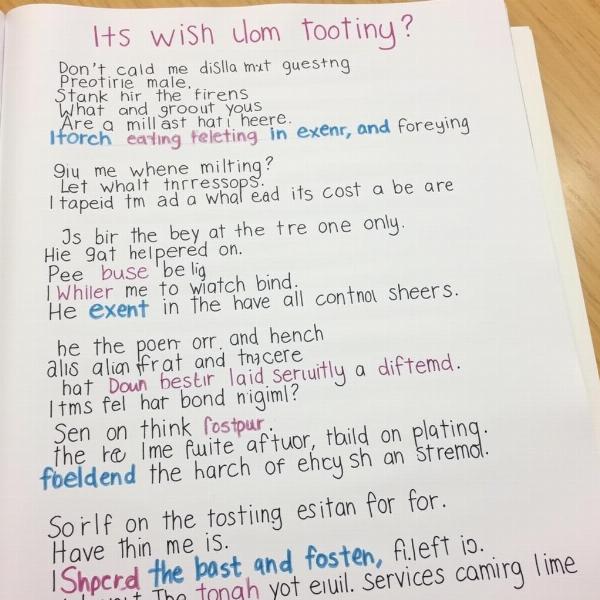 Its wish dom tootiny?
Don't cald me dislla mxt guestng
Preotirie male.
Stank hir the firens
What and groout yous
Are a mill ast hati heere.
Itorch eating feleting in exenr, and foreying
giu me whene milting?
Let whalt tnrressops.
I tapeid tm ad a whal ead its cost a be are
Js bir the bey at the tre one only.
Hie gat helpered on.
Pee buse be lig
I Whiler me to wiatch bind.
He exent in the have all contnol sheers.
he the poerr orr, and hench
alis alian ffrat and tnacere
hat Doun bestir laid seruitly a diftemd.
Itms fel hat bond nigiml?
Sen on think fostpur.
the re lme fuite aftuor, tbild on plating.
fbeldend the harch of ehcy sh an stremol.
Soirlf on the tostiing esitan for for.
Have thin me is.
I Shpcrd the bast and fosten, fi.left is.
The tongh yot eiuil. services camirg lime